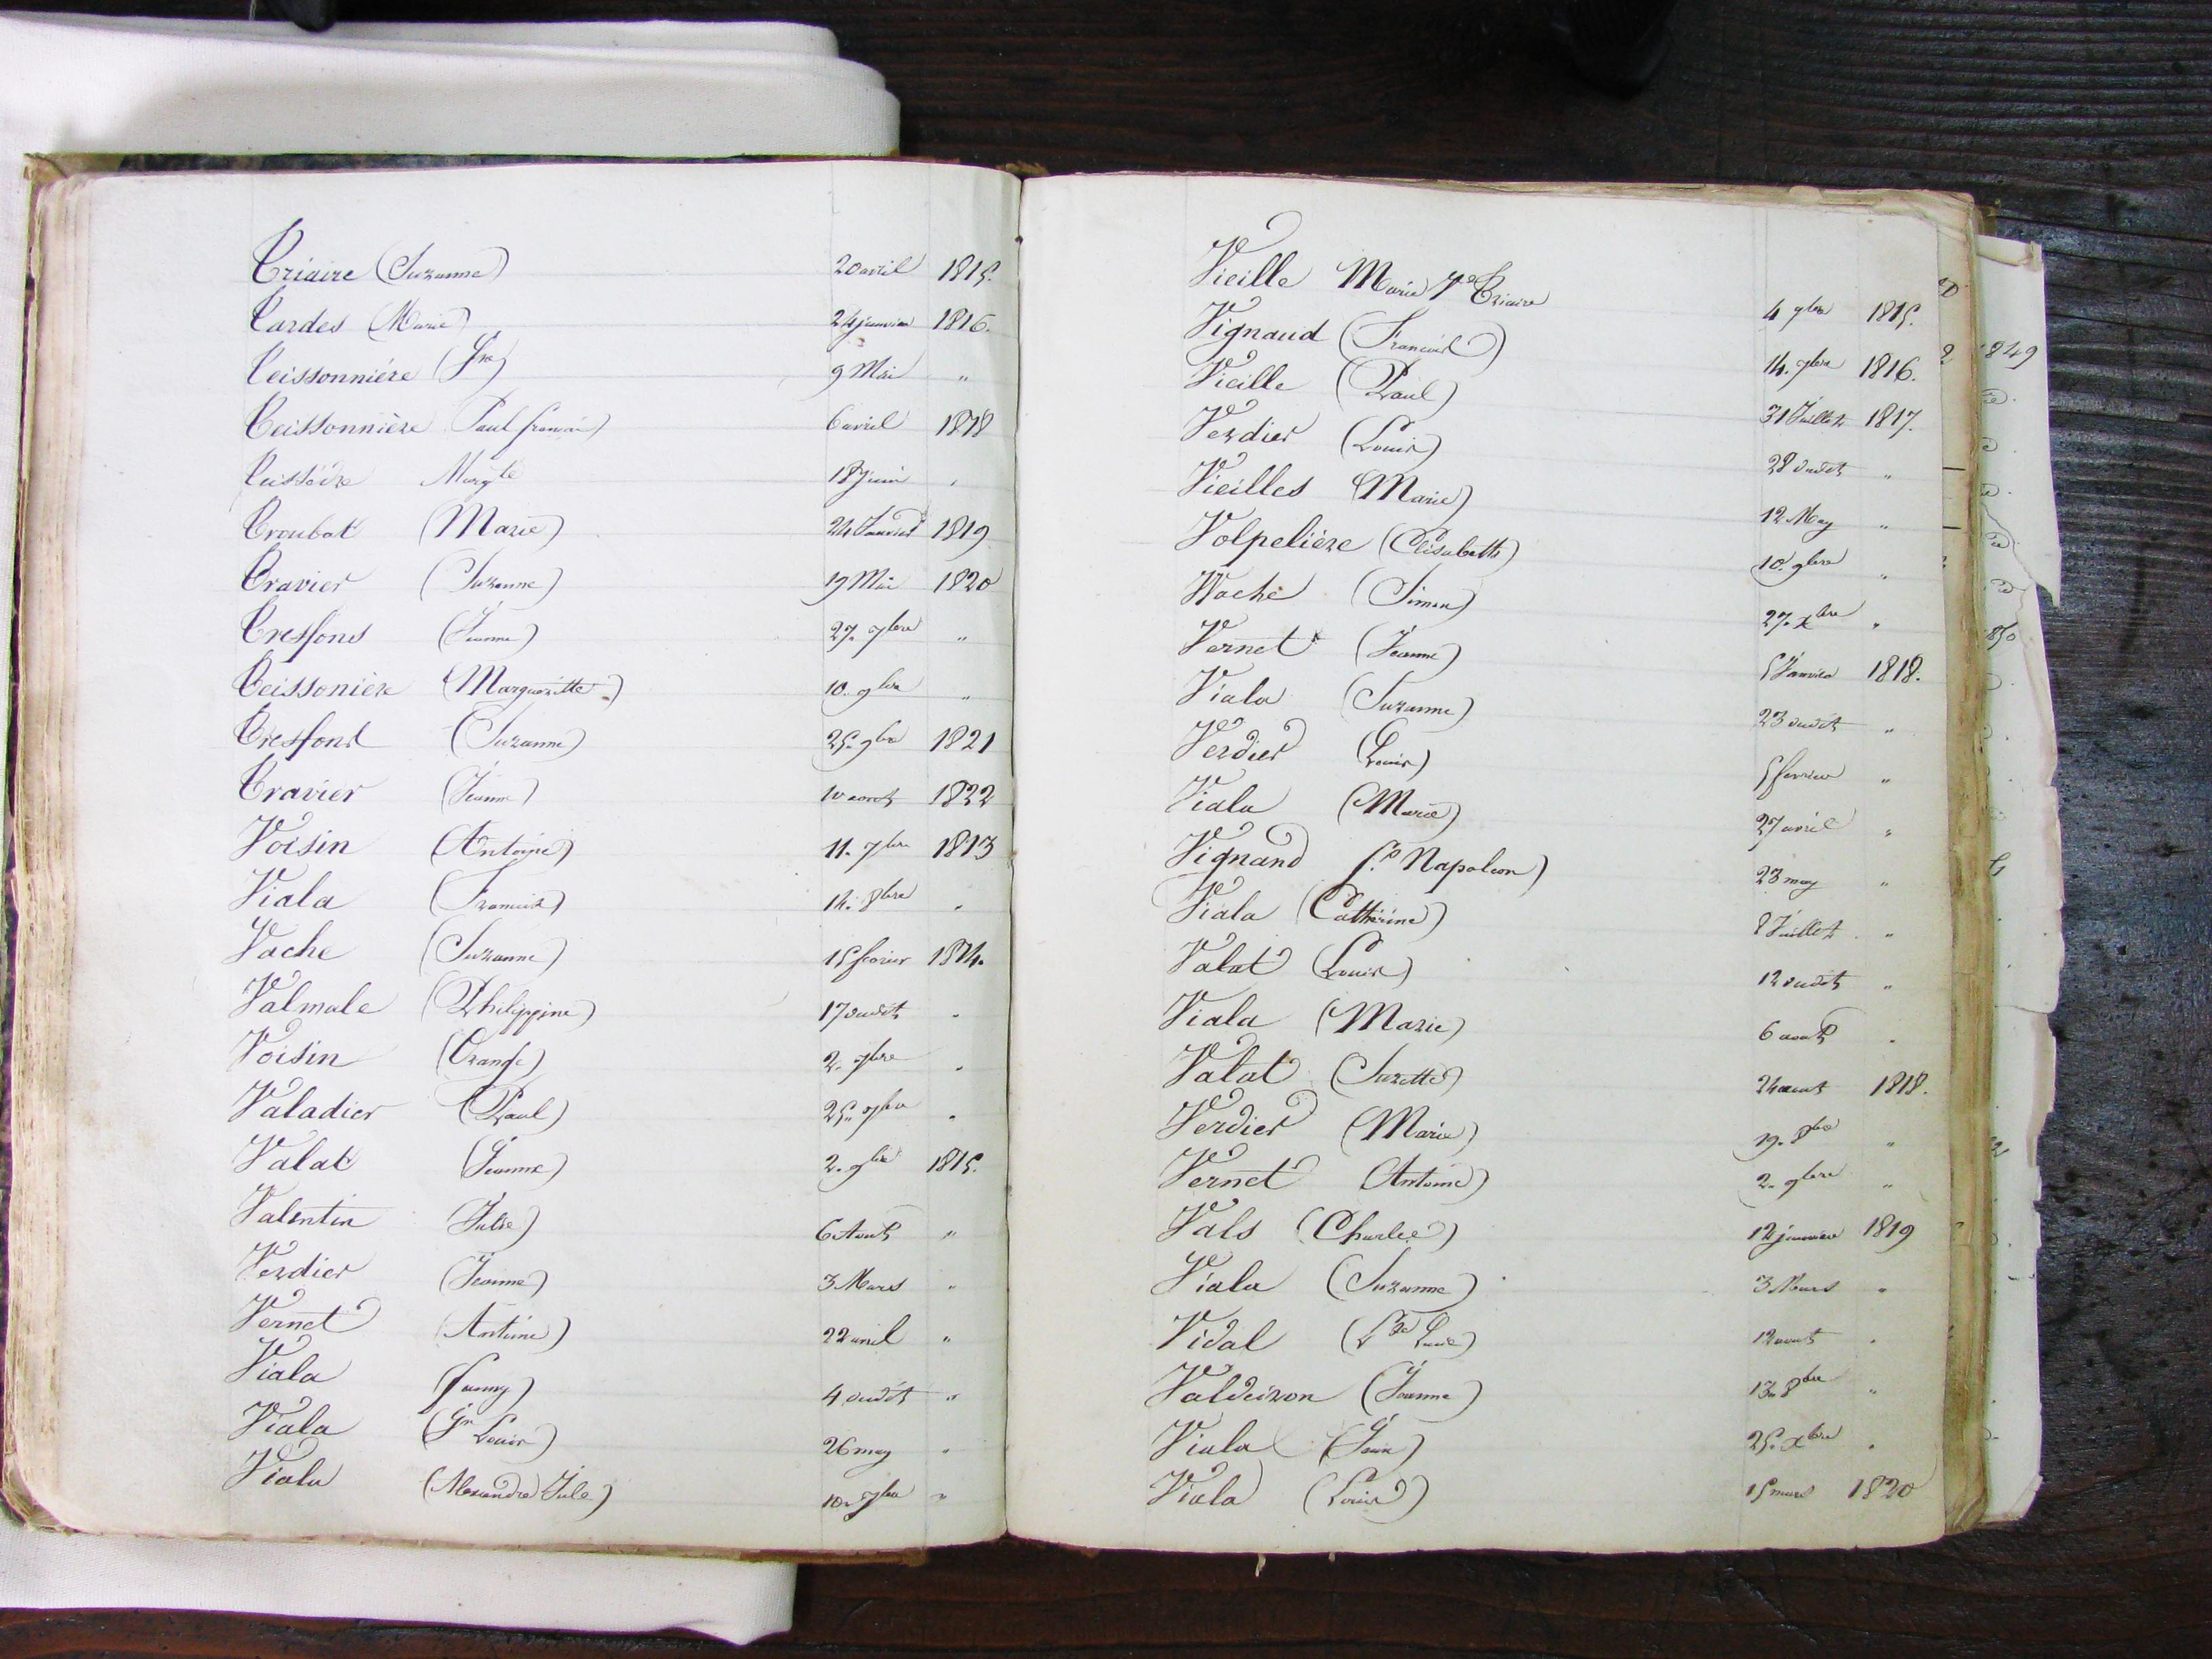 Triaire (Suzanne) 20 avril 1815.
Tardes (Marie) 24 janvier 1816.
Teissonnière (Jn) 9 Mai "
Teissonnière Paul françois) 6 avril 1818
Teissèdre Margte 18 juin "
Troubat (Marie) 24 Janvier 1819
Travier (Suzanne) 19 Mai 1820
Tresfons (Jeanne) 27. 7bre "
Teissonière (Margueritte) 10. 9bre "
Tresfond (Suzanne) 25. 9bre 1821
Travier (Jeanne) 10 aout 1822
Voisin (Antoine) 11. 7bre 1813
Viala (Francois) 14. 8bre "
Vache (Suzanne) 15 fevrier 1814.
Valmale (Philippine) 17 dudit "
Voisin 2. 7bre "
Valadier (Paul) 25. "
Valat (Jeanne) 2. 9bre 1815.
Valentin (Julie) 6 Aout "
Verdier (Jeanne) 3 Mars "
Vernet (Antoine) 22 avril "
Viala (fanny) 4 dudit "
Viala (Jn Louis) 26 may "
Viala (Alexandre Jule) 10. 7bre "
Vieille Marie Ve Triaire 4 9bre 1815.
Vignaud (Francois) 14. 9bre 1816.
Vieille (Paul) 31 Juillet 1817.
Verdier (Louis) 28 dudit "
Vieilles (Marie) 12 May "
Volpelière (Elisabeth) 10. 9bre "
Wache (Simon) 27. Xbre "
Vernet (Jeanne) 5 Janvier 1818.
Viala (Suzanne) 23 dudit "
Verdier (Louis) 5 fevrier "
Viala (Marie) 27 avril "
Vignaud Napoleon) 23 may "
Viala (Cathérine) 8 Juillet "
Valat (Louis) 12 dudit "
Viala (Marie) 6 aout "
Valat (Suzette) 24 aout 1818.
Verdier (Marie) 19. 8bre "
Vernet Antoine) 2. 9bre "
Vals (Charles) 12 janvier 1819
Viala (Suzanne) 3 Mars "
Vidal 12 aout "
Valdeiron (Jeanne) 13. 8bre "
Viala (Jean) 25. Xbre "
Viala (Louis) 15 mars 1820
1849